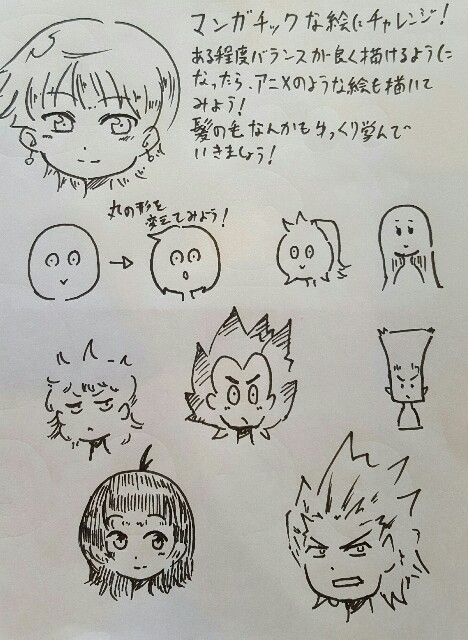 マンガチックな絵にチャレンジ!
ある程度バランスが良く描けるように
なったら、アニメのような絵も描いて
みよう!
髪の毛なんかもゆっくり学んで
いきましょう!
丸の形を
変えてみよう!